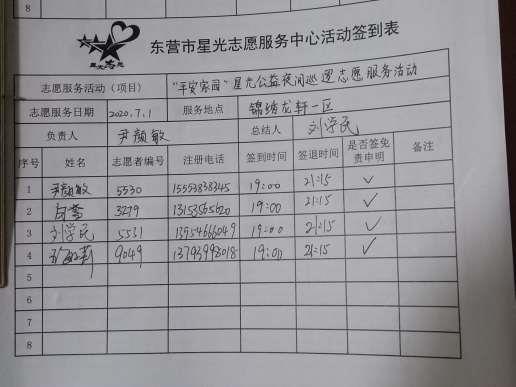 8
东营市星光志愿服务中心活动签到表
志愿服务活动（项目） "平安家园"星光公益夜间巡逻志愿服务活动
志愿服务日期 2020.7.1 服务地点 锦绣龙轩一区
负责人 尹颜敏 总结人 刘学民
序号 姓名 志愿者编号 注册电话 签到时间 签退时间 是否签免责申明 备注
1 尹颜敏 5530 15553838345 19:00 21:15 ✓
2 3279 13153565620 19:00 21:15 ✓
3 刘学民 5531 13954666049 19:00 21:15 ✓
4 9049 13793998018 19:00 21:15 ✓
5
6
7
8